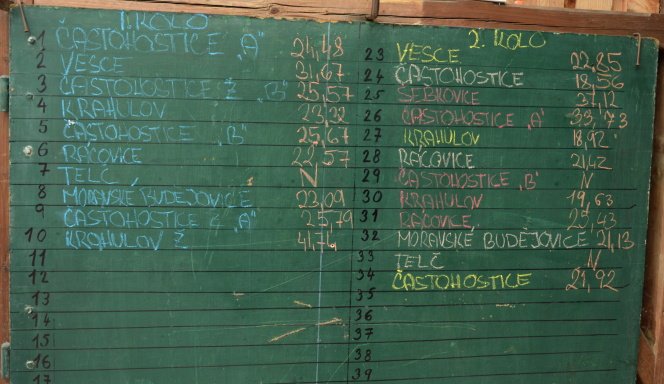 1. KOLO
1 ČASTOHOSTICE „A" 24,48
2 VESCE 31,67
3 ČASTOHOSTICE Ž „B" 25,57
4 KRAHULOV 23,22
5 ČASTOHOSTICE „B" 25,67
6 RÁČOVICE 22,57
7 TELČ N
8 MORAVSKÉ BUDĚJOVICE 23,09
9 ČASTOHOSTICE Ž „A" 25,79
10 KRAHULOV Ž 41,74
11
12
13
14
15
16
17
2. KOLO
23 VESCE 22,85
24 ČASTOHOSTICE 18,56
25 ŠEBKOVICE 31,12
26 ČASTOHOSTICE „A" 33,73
27 KRAHULOV 18,92
28 RÁČOVICE 21,42
29 ČASTOHOSTICE „B" N
30 KRAHULOV 19,63
31 RÁČOVICE 25,43
32 MORAVSKÉ BUDĚJOVICE 21,13
33 TELČ N
34 ČASTOHOSTICE 21,92
35
36
37
38
39